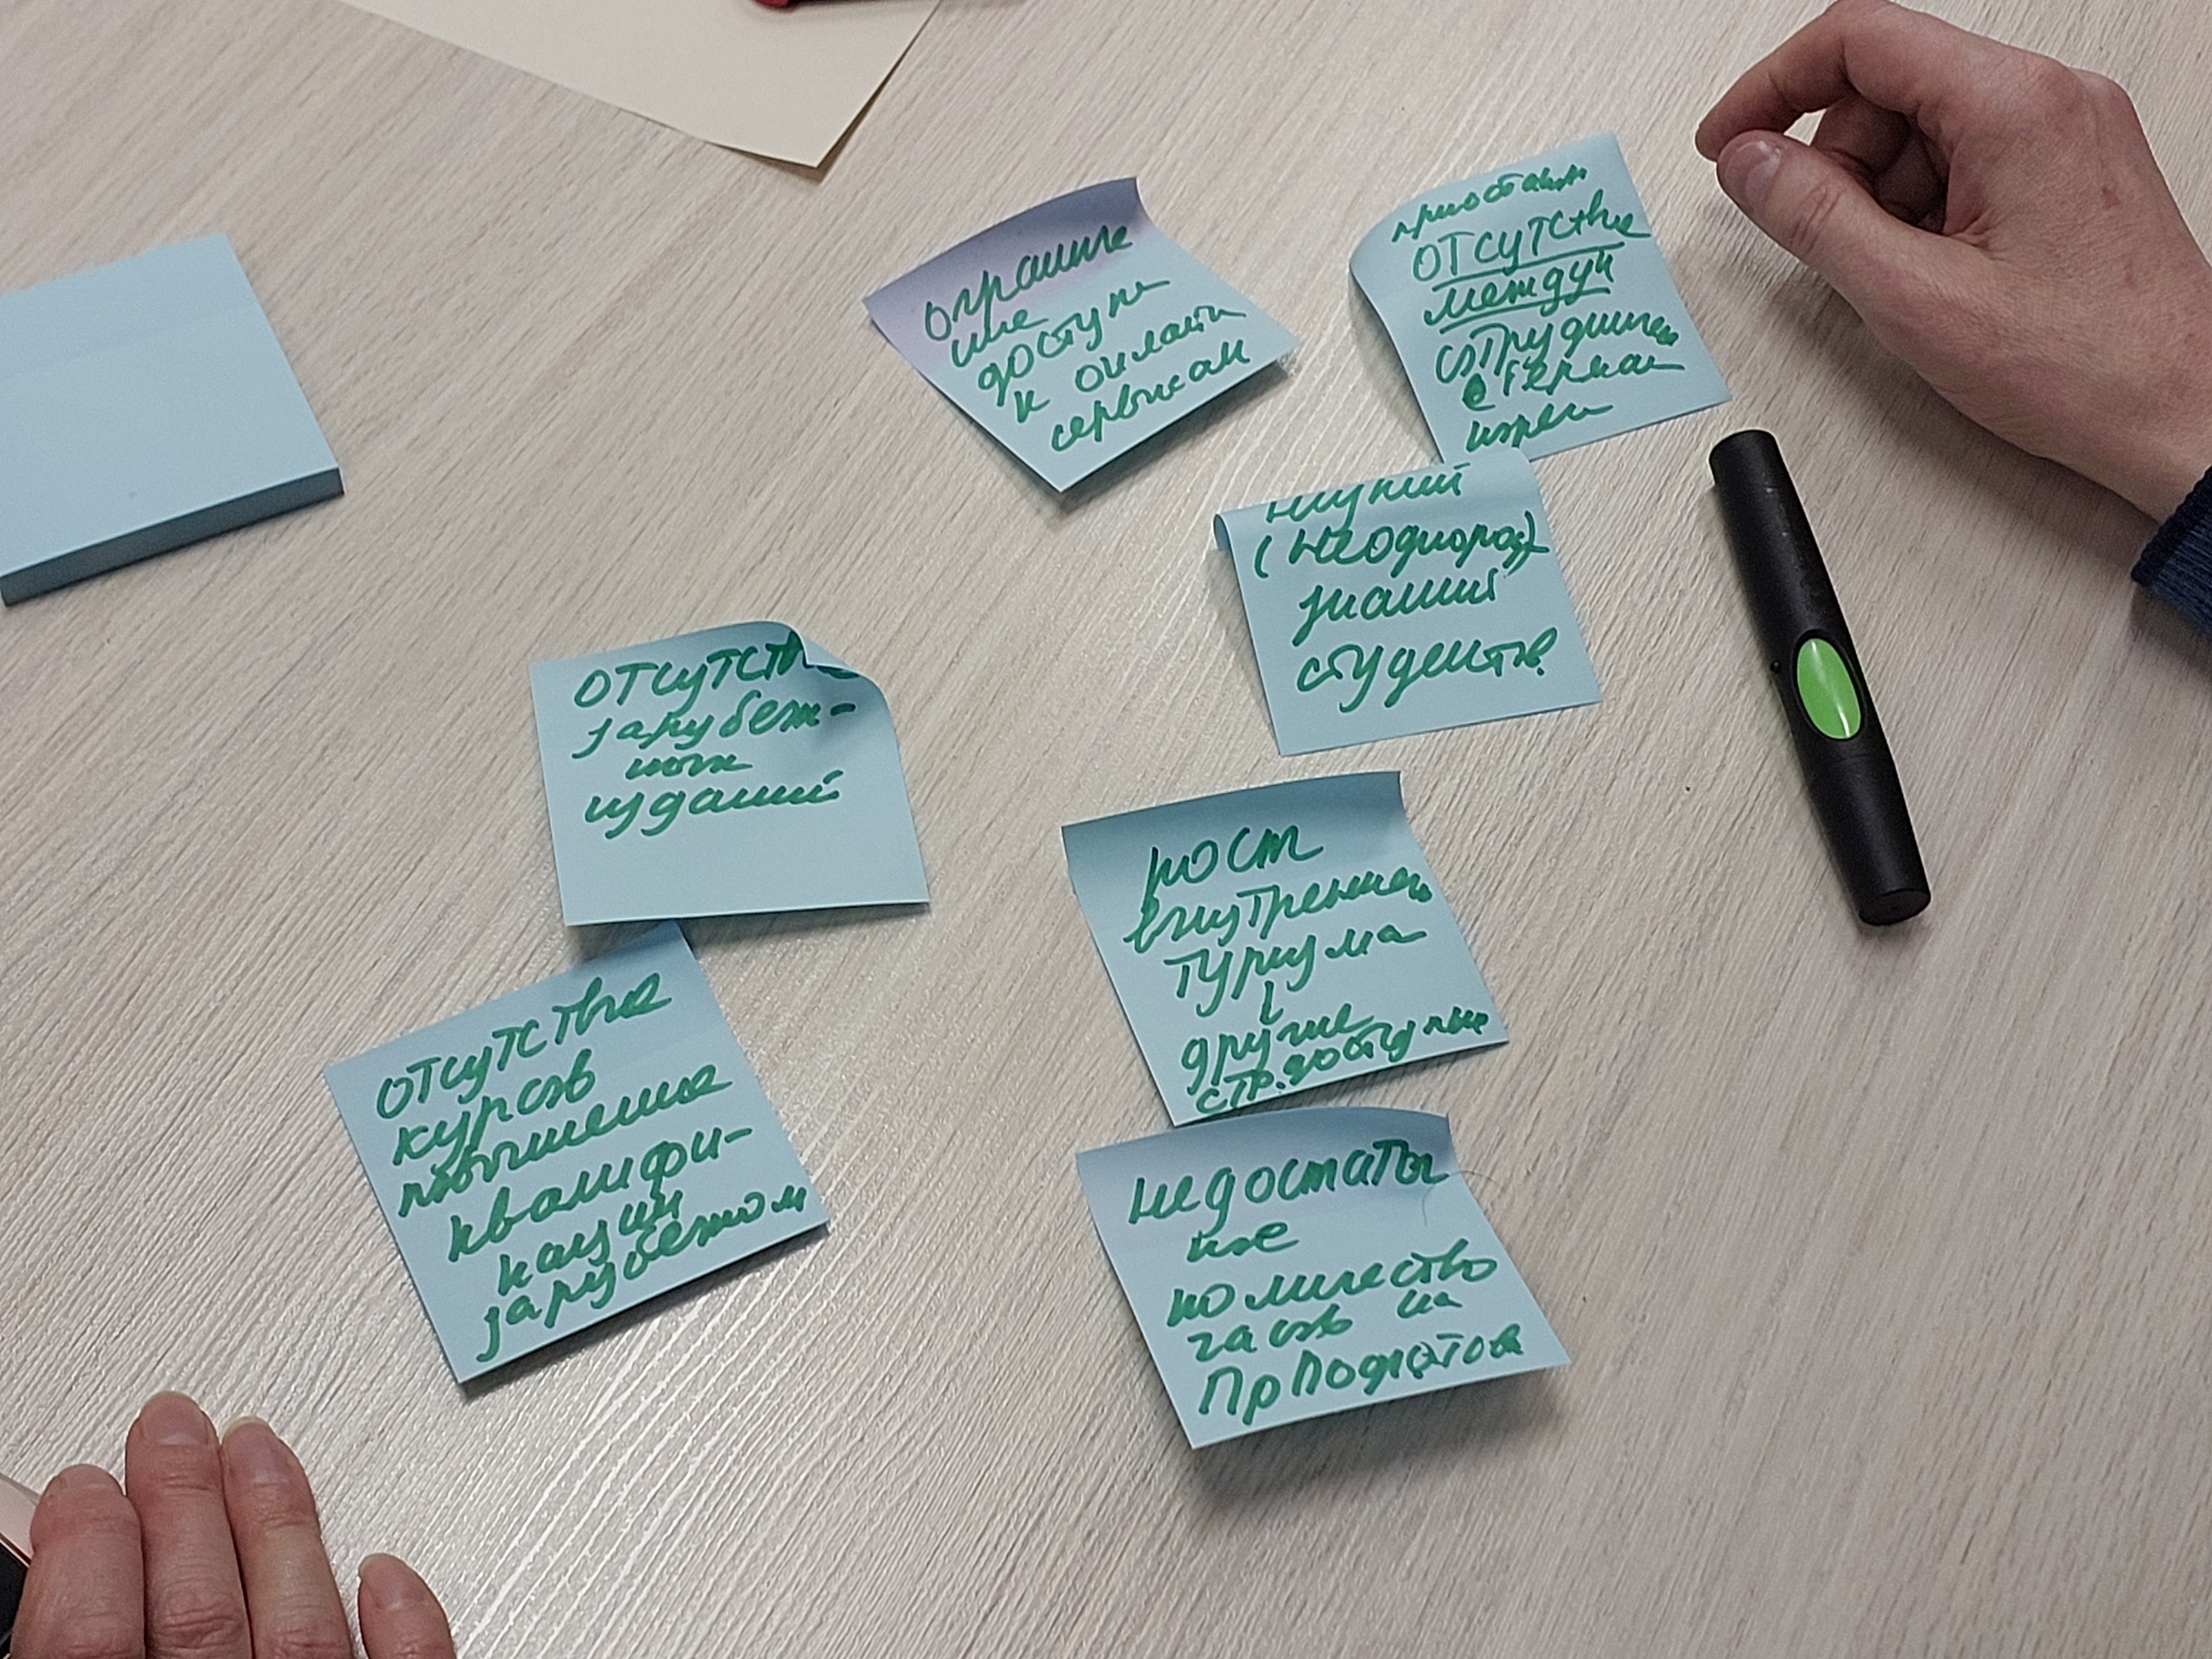 ограниче
ние
доступа
к онлайн
сервисам
приостан
отсутствие
междун
сотруднич
с Герман
низкий
(неоднород)
знаний
студентов
отсутствие
зарубеж-
ных
изданий
рост
внутреннего
туризма
других
стр. доступных
отсутствие
курсов
повышения
квалифи-
кации
зарубежом
недостаточ
ное
количество
часов на